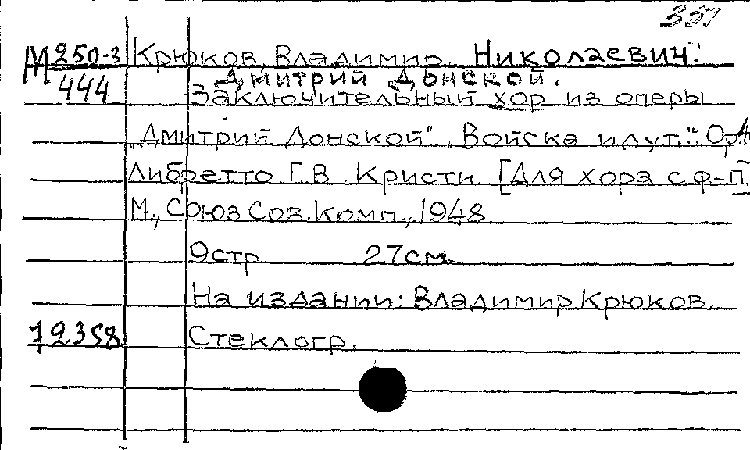 351
М 250-3 Крюков, Владимир Николаевич.
444 Дмитрий Донской.
Заключительный хор из оперы
"Дмитрий Донской". "Войска идут." Ор. 4
Либретто Г.В. Кристи [Для хора с ф-п]
М., Союз Сов. Комп., 1948
9 стр 27 см.
На издании: Владимир Крюков.
12358 Стеклогр.